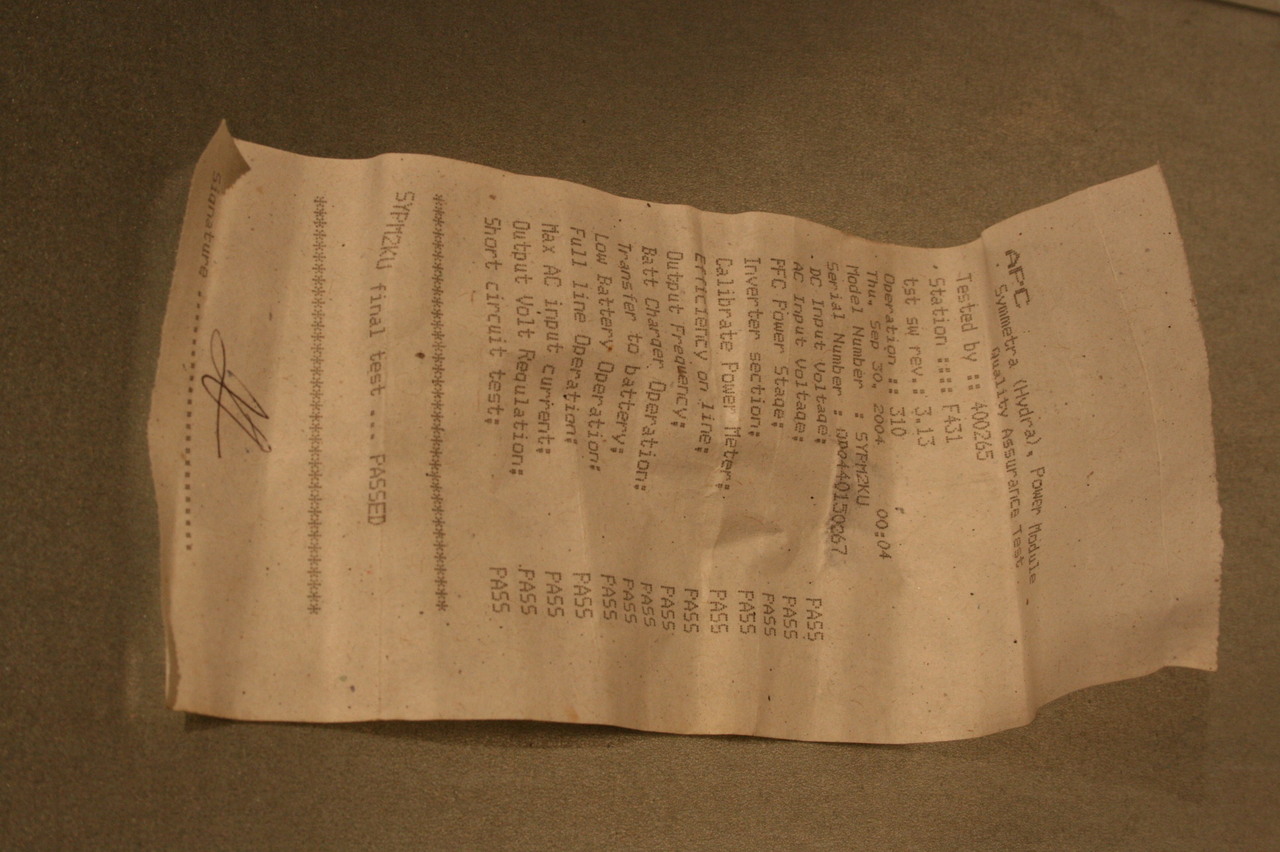 APC
Symmetra (Hydra), Power Module
Quality Assurance Test
Tested by :: 400265
Station :::: F431
tst sw rev.: 3.13
Operation :: 310
Thu. Sep 30. 2004 00:04
Model Number : SYPM2KU
Serial Number :
DC Input Voltage: PASS
AC Input Voltage: PASS
PFC Power Stage: PASS
Inverter section: PASS
Calibrate Power Meter: PASS
Efficiency on line: PASS
Output Frequency: PASS
Batt Charger Operation: PASS
Transfer to battery: PASS
Low Battery Operation: PASS
Full line Operation: PASS
Max AC input current: PASS
Output Volt Regulation: PASS
Short circuit test: PASS
SYPM2KU final test ... PASSED
Signature